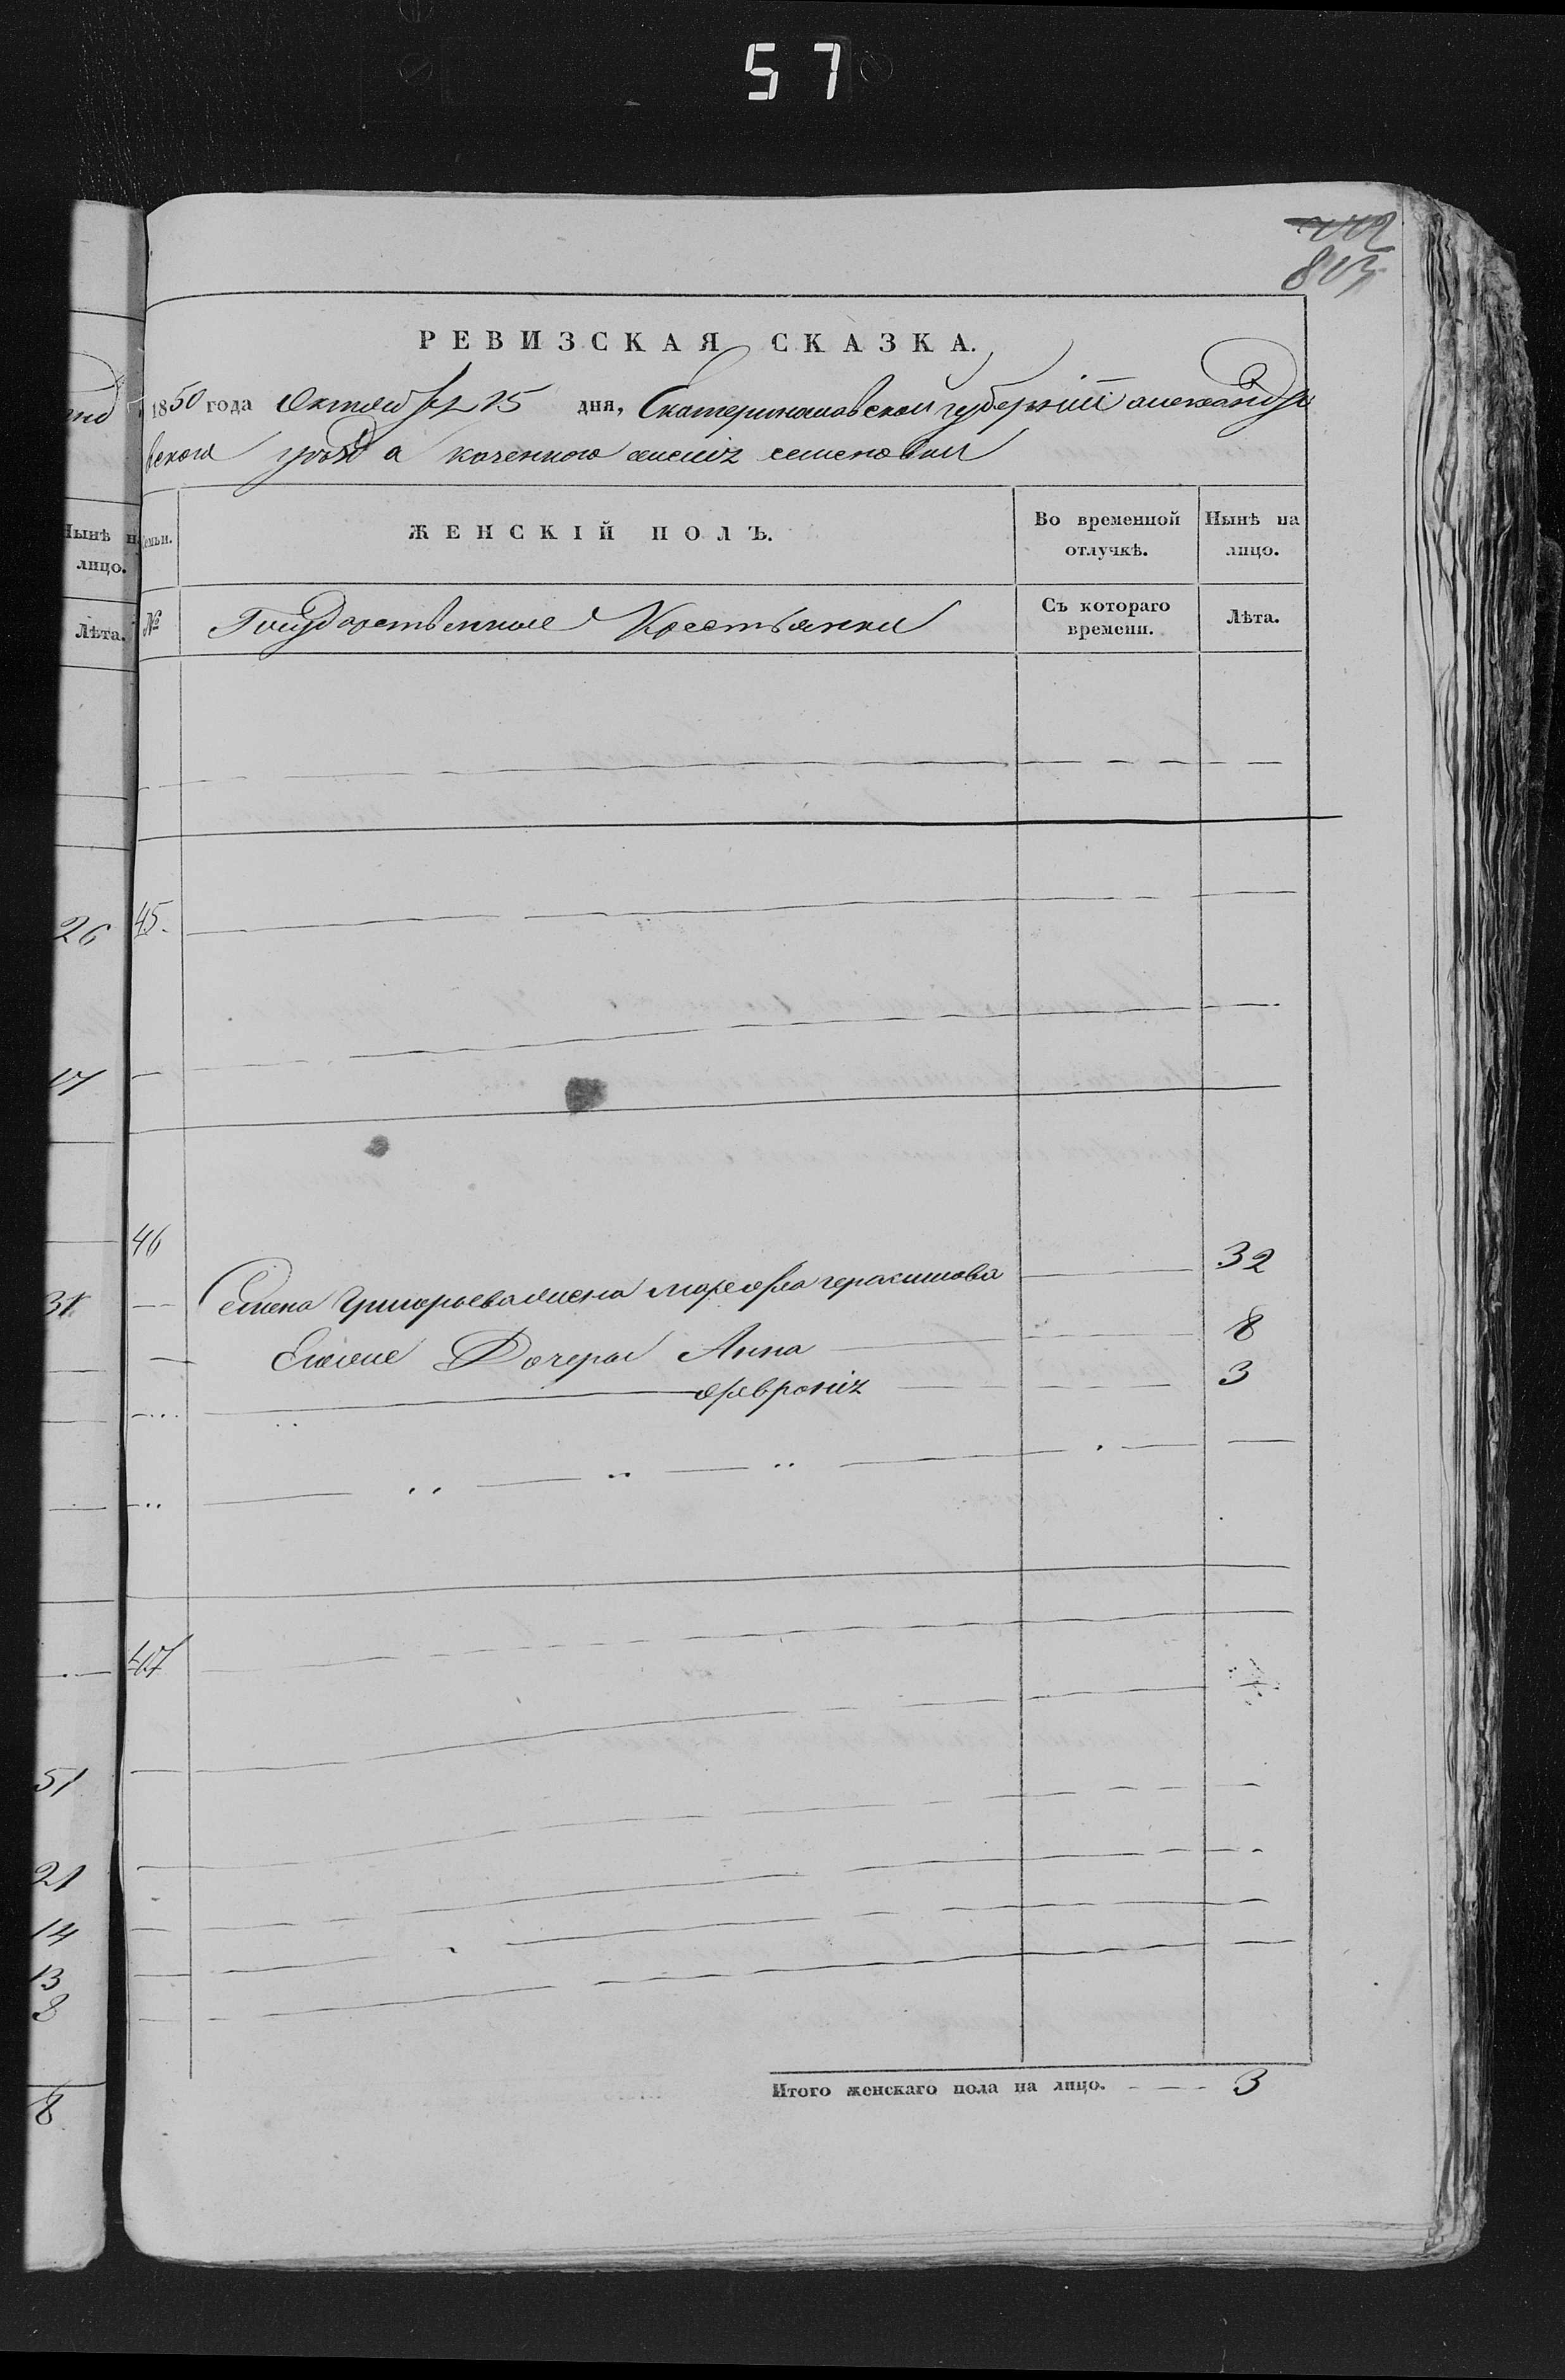 57
803
РЕВИЗСКАЯ СКАЗКА.
1850 года Октября 15 дня, Екатеринославской губернии александро
вского уезда казенного селения семеновки
Нынѣ на лицо.
Семьи.
ЖЕНСКІЙ ПОЛЪ.
Во временной отлучкѣ.
Нынѣ на лицо.
Лѣта.
№
Государственные Крестьянки
Съ котораго времени.
Лѣта.
26 45.
17
46
31
Семена Григорьева жена Марфа герасимова 32
Его же Дочери Анна 8
февронія 3
47
51
21
14
13
8
8
Итого женскаго пола на лицо. 3